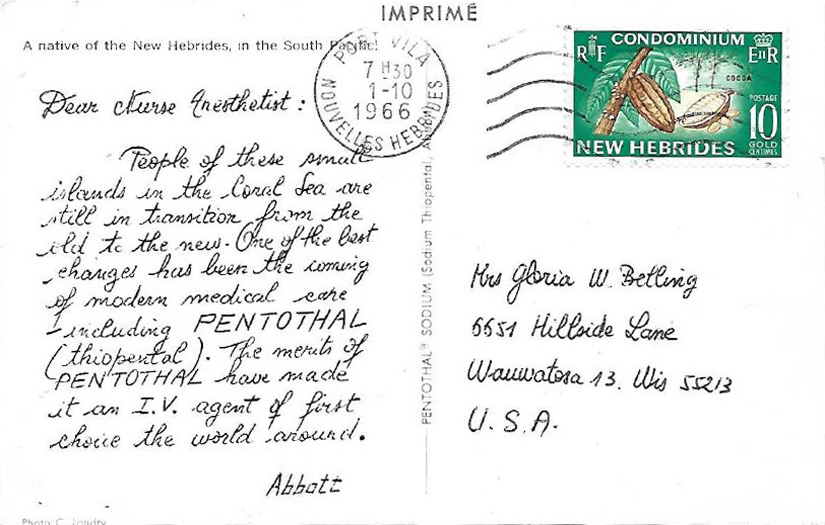 IMPRIMÉ
A native of the New Hebrides, in the South Pacific!
PORT VILA
7 H30
1-10
1966
NOUVELLES HEBRIDES
CONDOMINIUM
RF
EIIR
COCOA
POSTAGE
10
GOLD
CENTIMES
NEW HEBRIDES
Dear Nurse Anesthetist:
People of these small
islands in the Coral Sea are
still in transition from the
old to the new. One of the best
changes has been the coming
of modern medical care
- including PENTOTHAL
(thiopental). The merits of
PENTOTHAL have made
it an I.V. agent of first
choice the world around.
Abbott
PENTOTHAL® SODIUM (Sodium Thiopental, Abbott)
Mrs Gloria W. Betling
6651 Hillside Lane
Wauwatosa 13. Wis 55213
U.S.A.
Photo C. Londry